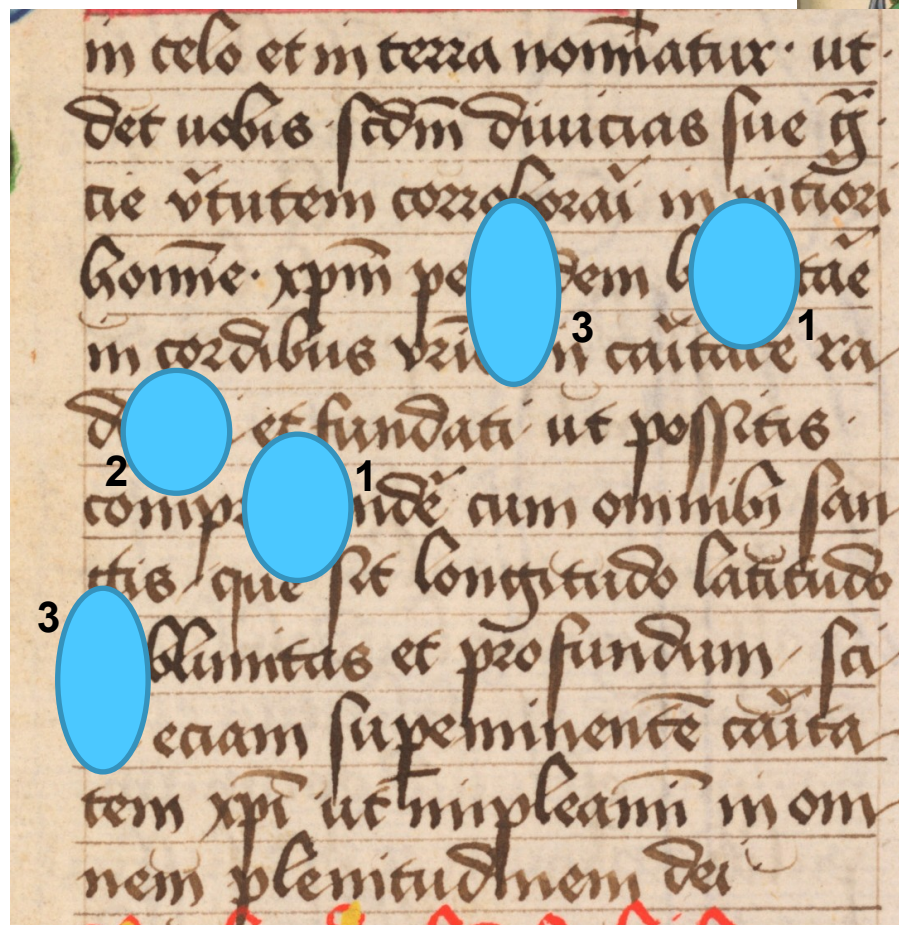 in celo et in terra nom̄inatur · ut ·
det uobis scdm̄ diuicias sue gr̄
cie v̄tutem corroborar̄i in int̄iori
homīe · xpm̄ dem tāe
3 1
in cordibus vr̄is in car̄itate ra
et fundati ut possitis
2 1
ndē cum omnibȝ san
ctis / que sit longitudo latitudo
3
et profundum / sci
eciam suꝑeminentē car̄ita
tem xpī ut impleamī in om
nem plenitudinem dei